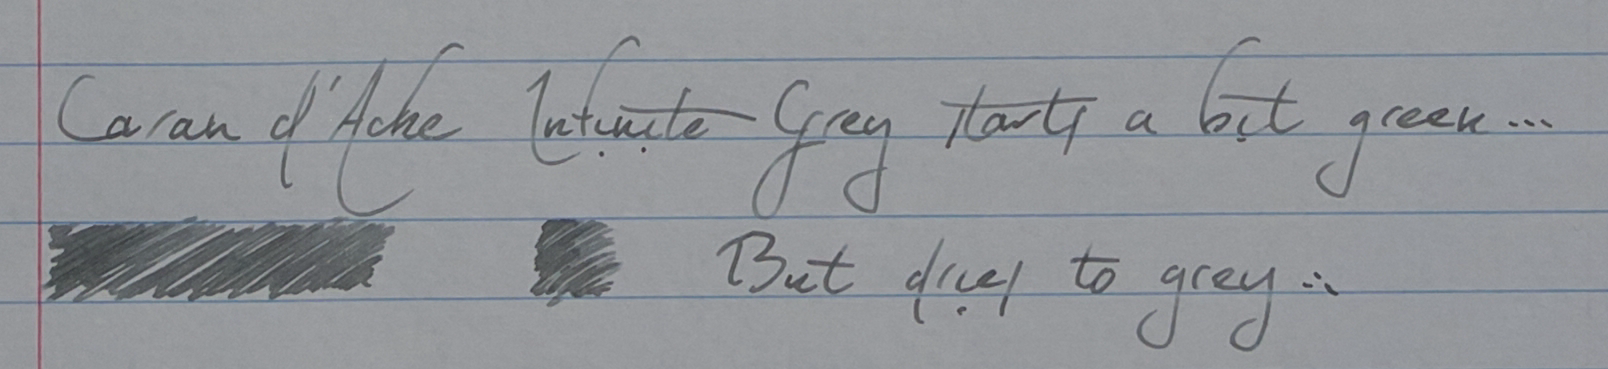 Caran d'Ache Infinite Grey starts a bit green...
But dries to grey...